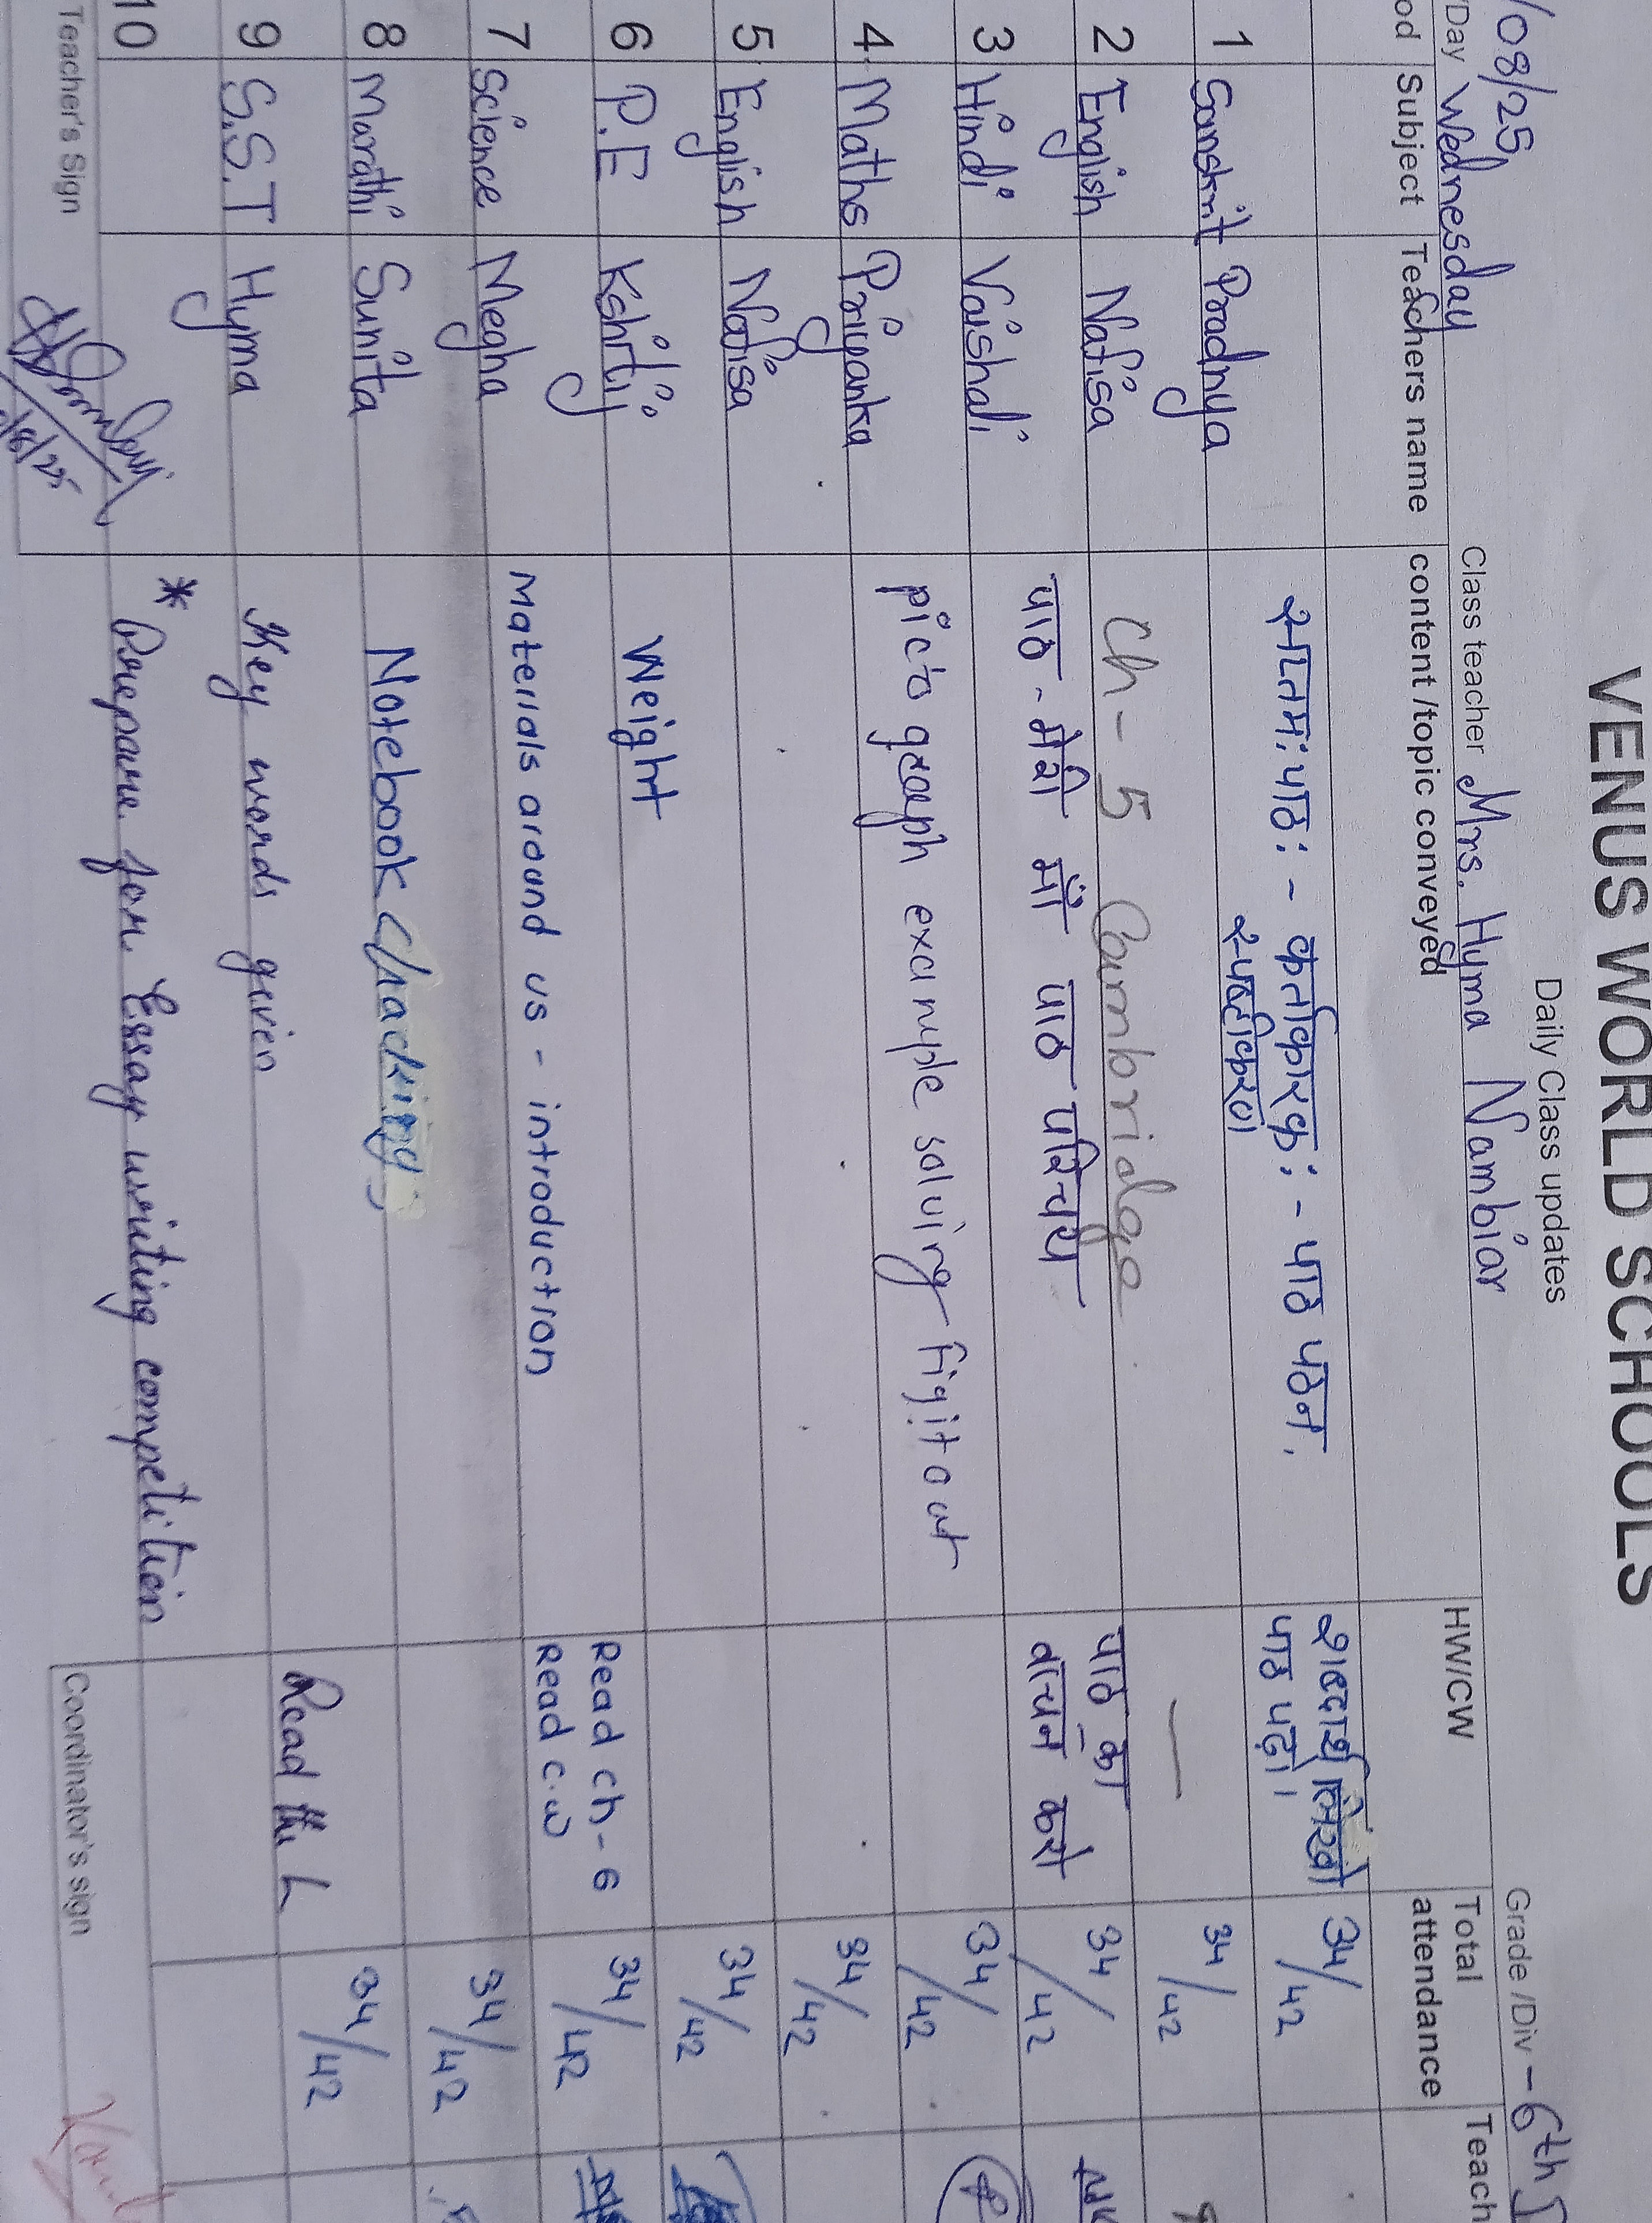 VENUS WORLD SCHOOLS
Daily Class updates
/08/25
Day Wednesday Class teacher Mrs. Hyma Nambiar Grade /Div - 6th
od Subject Teachers name content /topic conveyed HW/CW Total attendance Teach
1 Sanskrit Pradnya सप्तमः पाठः - कर्ताकारकः - पाठ पठन, शब्दार्थ लिखो 34/42
स्पष्टीकरण पाठ पढो।
2 English Nafisa Ch - 5 Cambridge — 34/42
3 Hindi Vaishali पाठ - मेरी माँ पाठ परिचय पाठ का 34/42
वाचन करो
4 Maths Priyanka picto graph example solving figit out 34/42
5 English Nafisa 34/42
6 P.E Kshitij Weight 34/42
7 Science Megha Materials around us - introduction Read ch-6 34/42
Read c.w
8 Marathi Sunita Notebook chacking, 34/42
9 S.S.T Hyma Key words given Read the L 34/42
10 * Prepare for Essay writing competition
Teacher's Sign Coordinator's sign